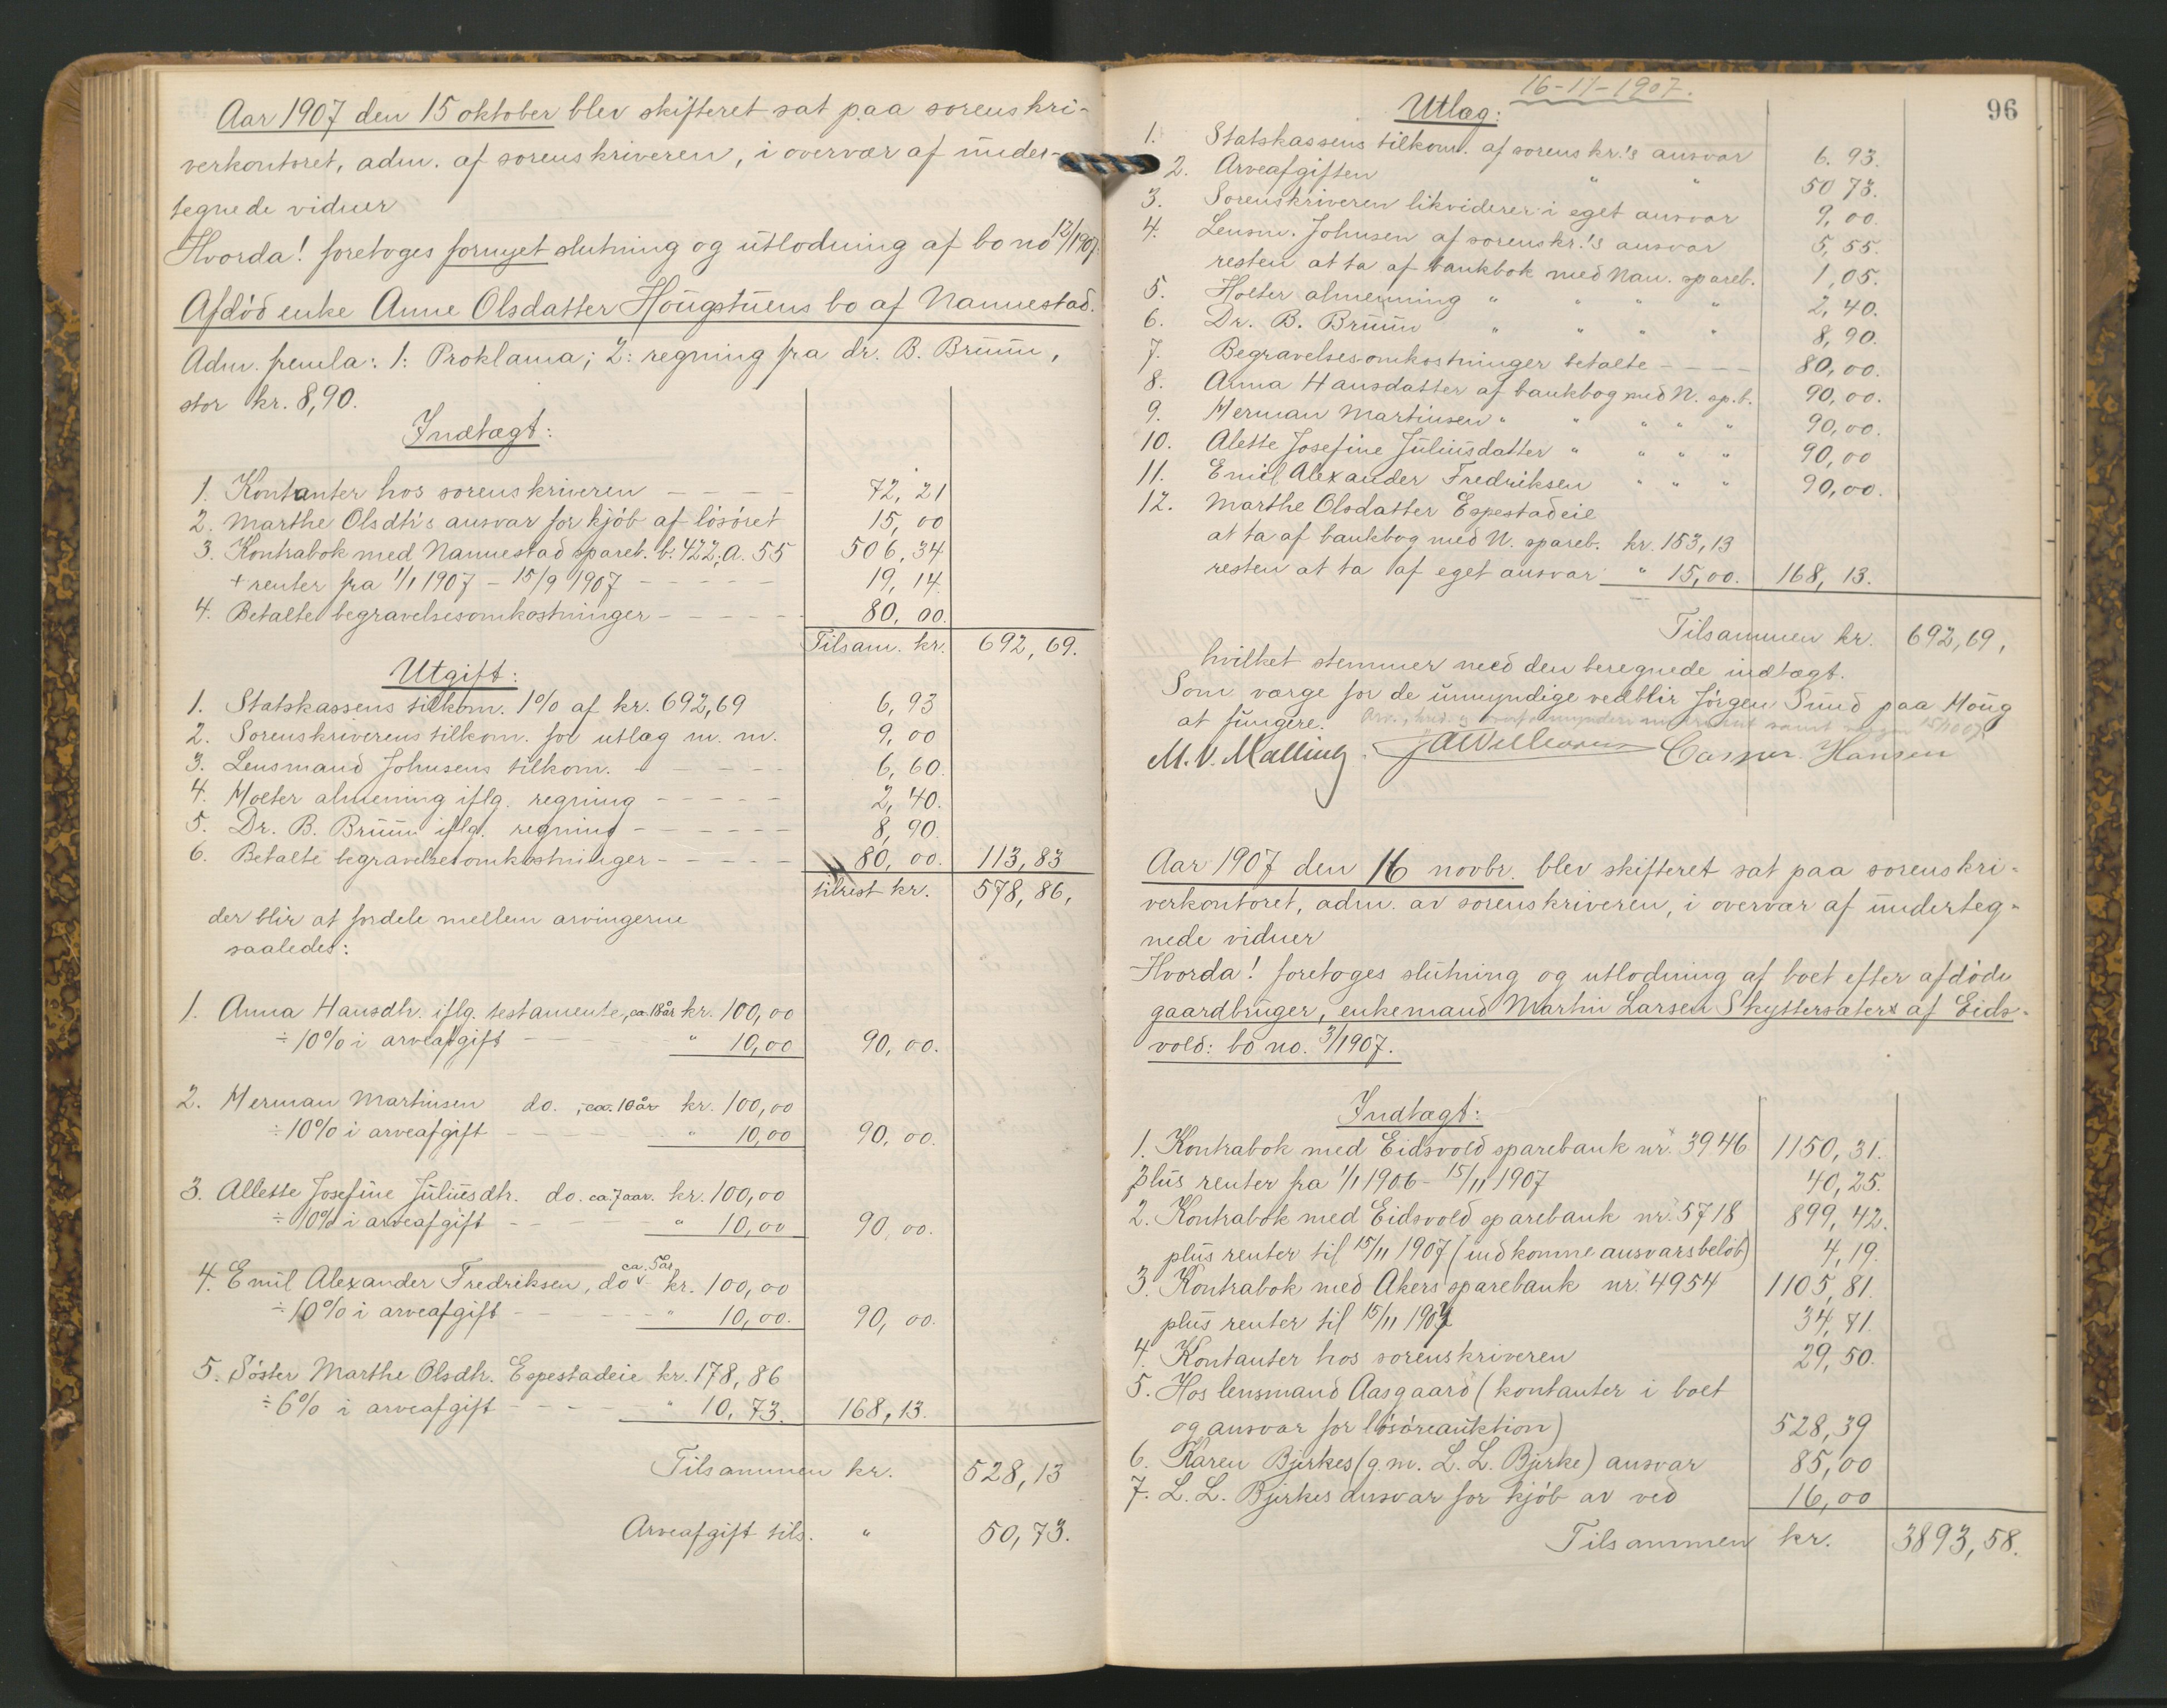 Aar 1907 den 15 oktober blev skifteret sat paa sorenskri-
verkontoret, adm. af sorenskriveren, i overvær af under-
tegnede vidner
Hvorda! foretoges fornyet slutning og utlodning af bo no 12/1907.
Afdöd enke Anne Olsdatter Hougstuens bo af Nannestad.
Adm. fremla: 1: Proklama; 2: regning fra dr. B. Bruun,
stor kr. 8,90.
Indtægt:
1. Kontanter hos sorenskriveren - - - - 72,21
2. Marthe Olsdtr's ansvar for kjöb af lösöret 15,00
3. Kontrabok med Nannestad spareb. b. 422, a. 55 506,34
+ renter fra 1/1 1907 - 15/9 1907 - - - - - 19,14
4. Betalte begravelsesomkostninger - - - - - 80,00.
Tilsam. kr. 692,69.
Utgift:
1. Statskassens tilkom. 1% af kr. 692,69 6,93
2. Sorenskriverens tilkom. for utlæg m. m. 9,00
3. Lensmand Johnsens tilkom. - - - - 6,60.
4. Holter almenning iflg. regning - - - - - 2,40.
5. Dr. B. Bruun iflg. regning - - - - - - 8,90.
6. Betalte begravelsesomkostninger - - - - - 80,00. 113,83
tilrest kr. 578,86,
der blir at fordele mellem arvingerne
saaledes:
1. Anna Hansdtr. iflg. testamente, ca. 18 år kr. 100,00
÷ 10% i arveafgift - - - - - " 10,00 90,00.
2. Herman Martinsen do. , ca. 10 år kr. 100,00
÷ 10% i arveafgift - - - - - " 10,00 90,00.
3. Allette Josefine Juliusdtr. do. ca. 7 aar. kr. 100,00
÷ 10% i arveafgift - - - - - " 10,00 90,00.
ca. 5 år
4. Emil Alexander Fredriksen, do v - kr. 100,00
÷ 10% i arveafgift - - - - - " 10,00. 90,00.
5. Söster Marthe Olsdtr. Espestadeie kr. 178,86
÷ 6% i arveafgift - - - - - " 10,73. 168,13.
Tilsammen kr. 528,13
Arveafgift tils. " 50,73.
16-11-1907.
96
Utlæg:
1. Statskassens tilkom. af sorenskr.'s ansvar 6.93.
2. Arveafgiften " " 50 73.
3. Sorenskriveren likviderer i eget ansvar 9,00.
4. Lensm. Johnsen af sorenskr.'s ansvar 5,55.
resten at ta af bankbok med Nan. spareb. 1,05.
5. Holter almenning " " " " 2,40.
6. Dr. B. Bruun " " " " 8,90.
7. Begravelsesomkostninger betalte - - - - 80,00.
8. Anna Hansdatter af bankbog med N. sp.b. 90,00.
9. Herman Martinsen " " " " " 90,00.
10. Alette Josefine Juliusdatter " " " " 90,00
11. Emil Alexander Fredriksen " " " 90,00.
12. Marthe Olsdatter Espestadeie
at ta af bankbog med N. spareb. kr. 153,13
resten at ta af eget ansvar " 15,00. 168,13.
Tilsammen kr. 692,69,
hvilket stemmer med den beregnede indtægt.
Som værge for de umyndige vedblir Jörgen Sund paa Houg
at fungere.
M. V. Malling. Casper Hansen
Aar 1907 den 16 novbr. blev skifteret sat paa sorenskri-
verkontoret, adm. av sorenskriveren, i overvær af underteg-
nede vidner
Hvorda! foretoges slutning og utlodning af boet efter afdöde
gaardbruger, enkemand Martin Larsen Skyttersæters af Eids-
vold: bo no. 3/1907.
Indtægt:
1. Kontrabok med Eidsvold sparebank nr. 3946 1150,31.
plus renter fra 1/1 1906 - 15/11 1907 40,25.
2. Kontrabok med Eidsvold sparebank nr. 5718 899,42.
plus renter til 15/11 1907 (indkomne ansvarsbelöb) 4,19.
3. Kontrabok med Akers sparebank nr. 4954 1105,81.
plus renter til 15/11 1907 34,71.
4. Kontanter hos sorenskriveren 29,50.
5. Hos lensmand Aasgaard (kontanter i boet
og ansvar for lösöreauktion) 528,39
6. Karen Bjerkes (g. m. L. L. Bjerke) ansvar 85,00
7. L. L. Bjerkes ansvar for kjöb av ved 16,00
Tilsammen kr. 3893,58.